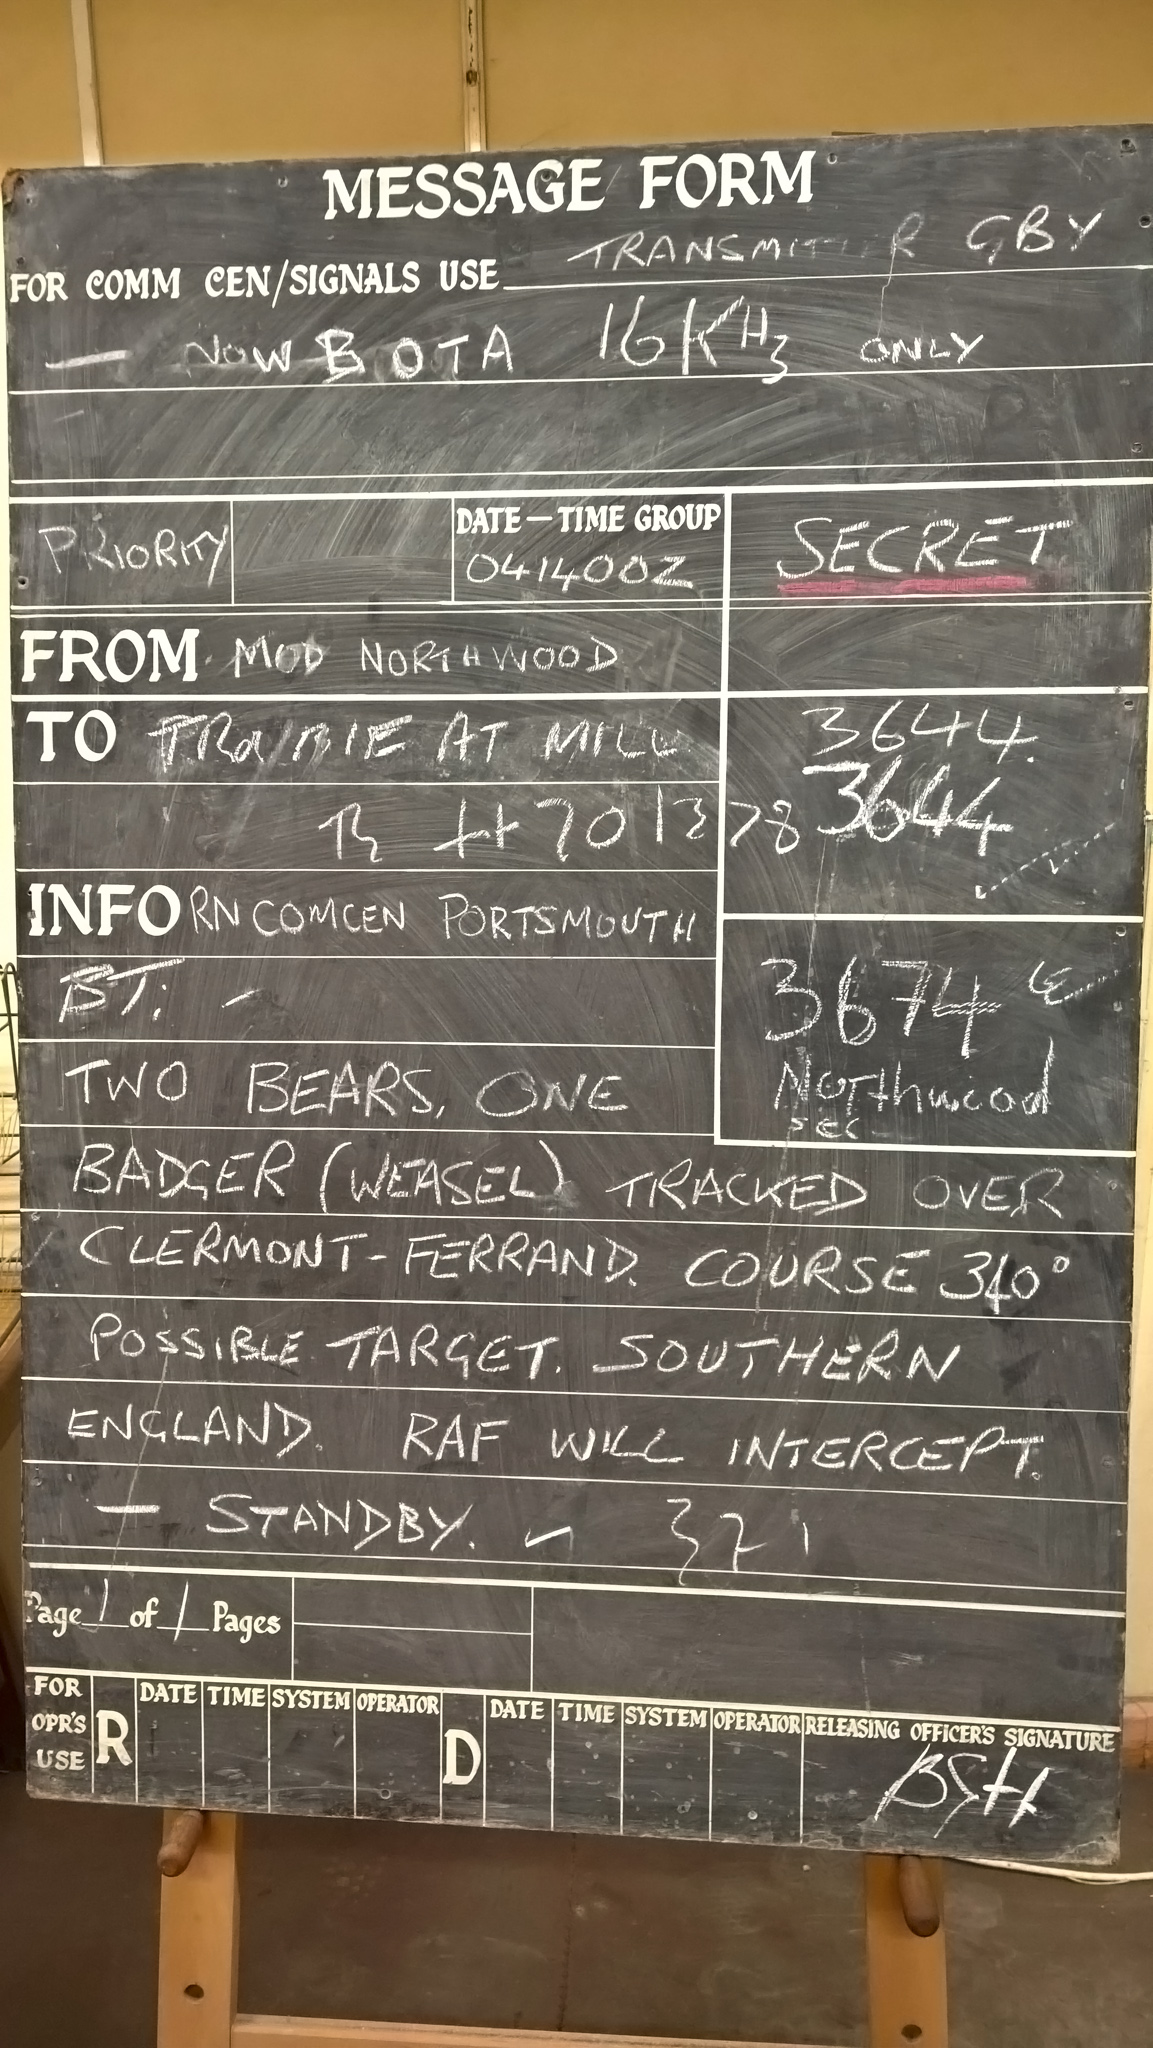 MESSAGE FORM
FOR COMM CEN/SIGNALS USE TRANSMITTER GBY
— NOW BOTA 16KHz ONLY
PRIORITY
DATE—TIME GROUP
041400Z
SECRET
FROM MOD NORTHWOOD
TO AT MILL
3644.
3644
701378
INFO RN COMCEN PORTSMOUTH
BT: -
3674
Northwood
SEC
TWO BEARS, ONE
BADGER (WEASEL) TRACKED OVER
CLERMONT-FERRAND. COURSE 340°
POSSIBLE TARGET. SOUTHERN
ENGLAND. RAF WILL INTERCEPT.
— STANDBY. -
Page 1 of 1 Pages
FOR OPR'S USE
R
DATE TIME SYSTEM OPERATOR
D
DATE TIME SYSTEM OPERATOR
RELEASING OFFICER'S SIGNATURE